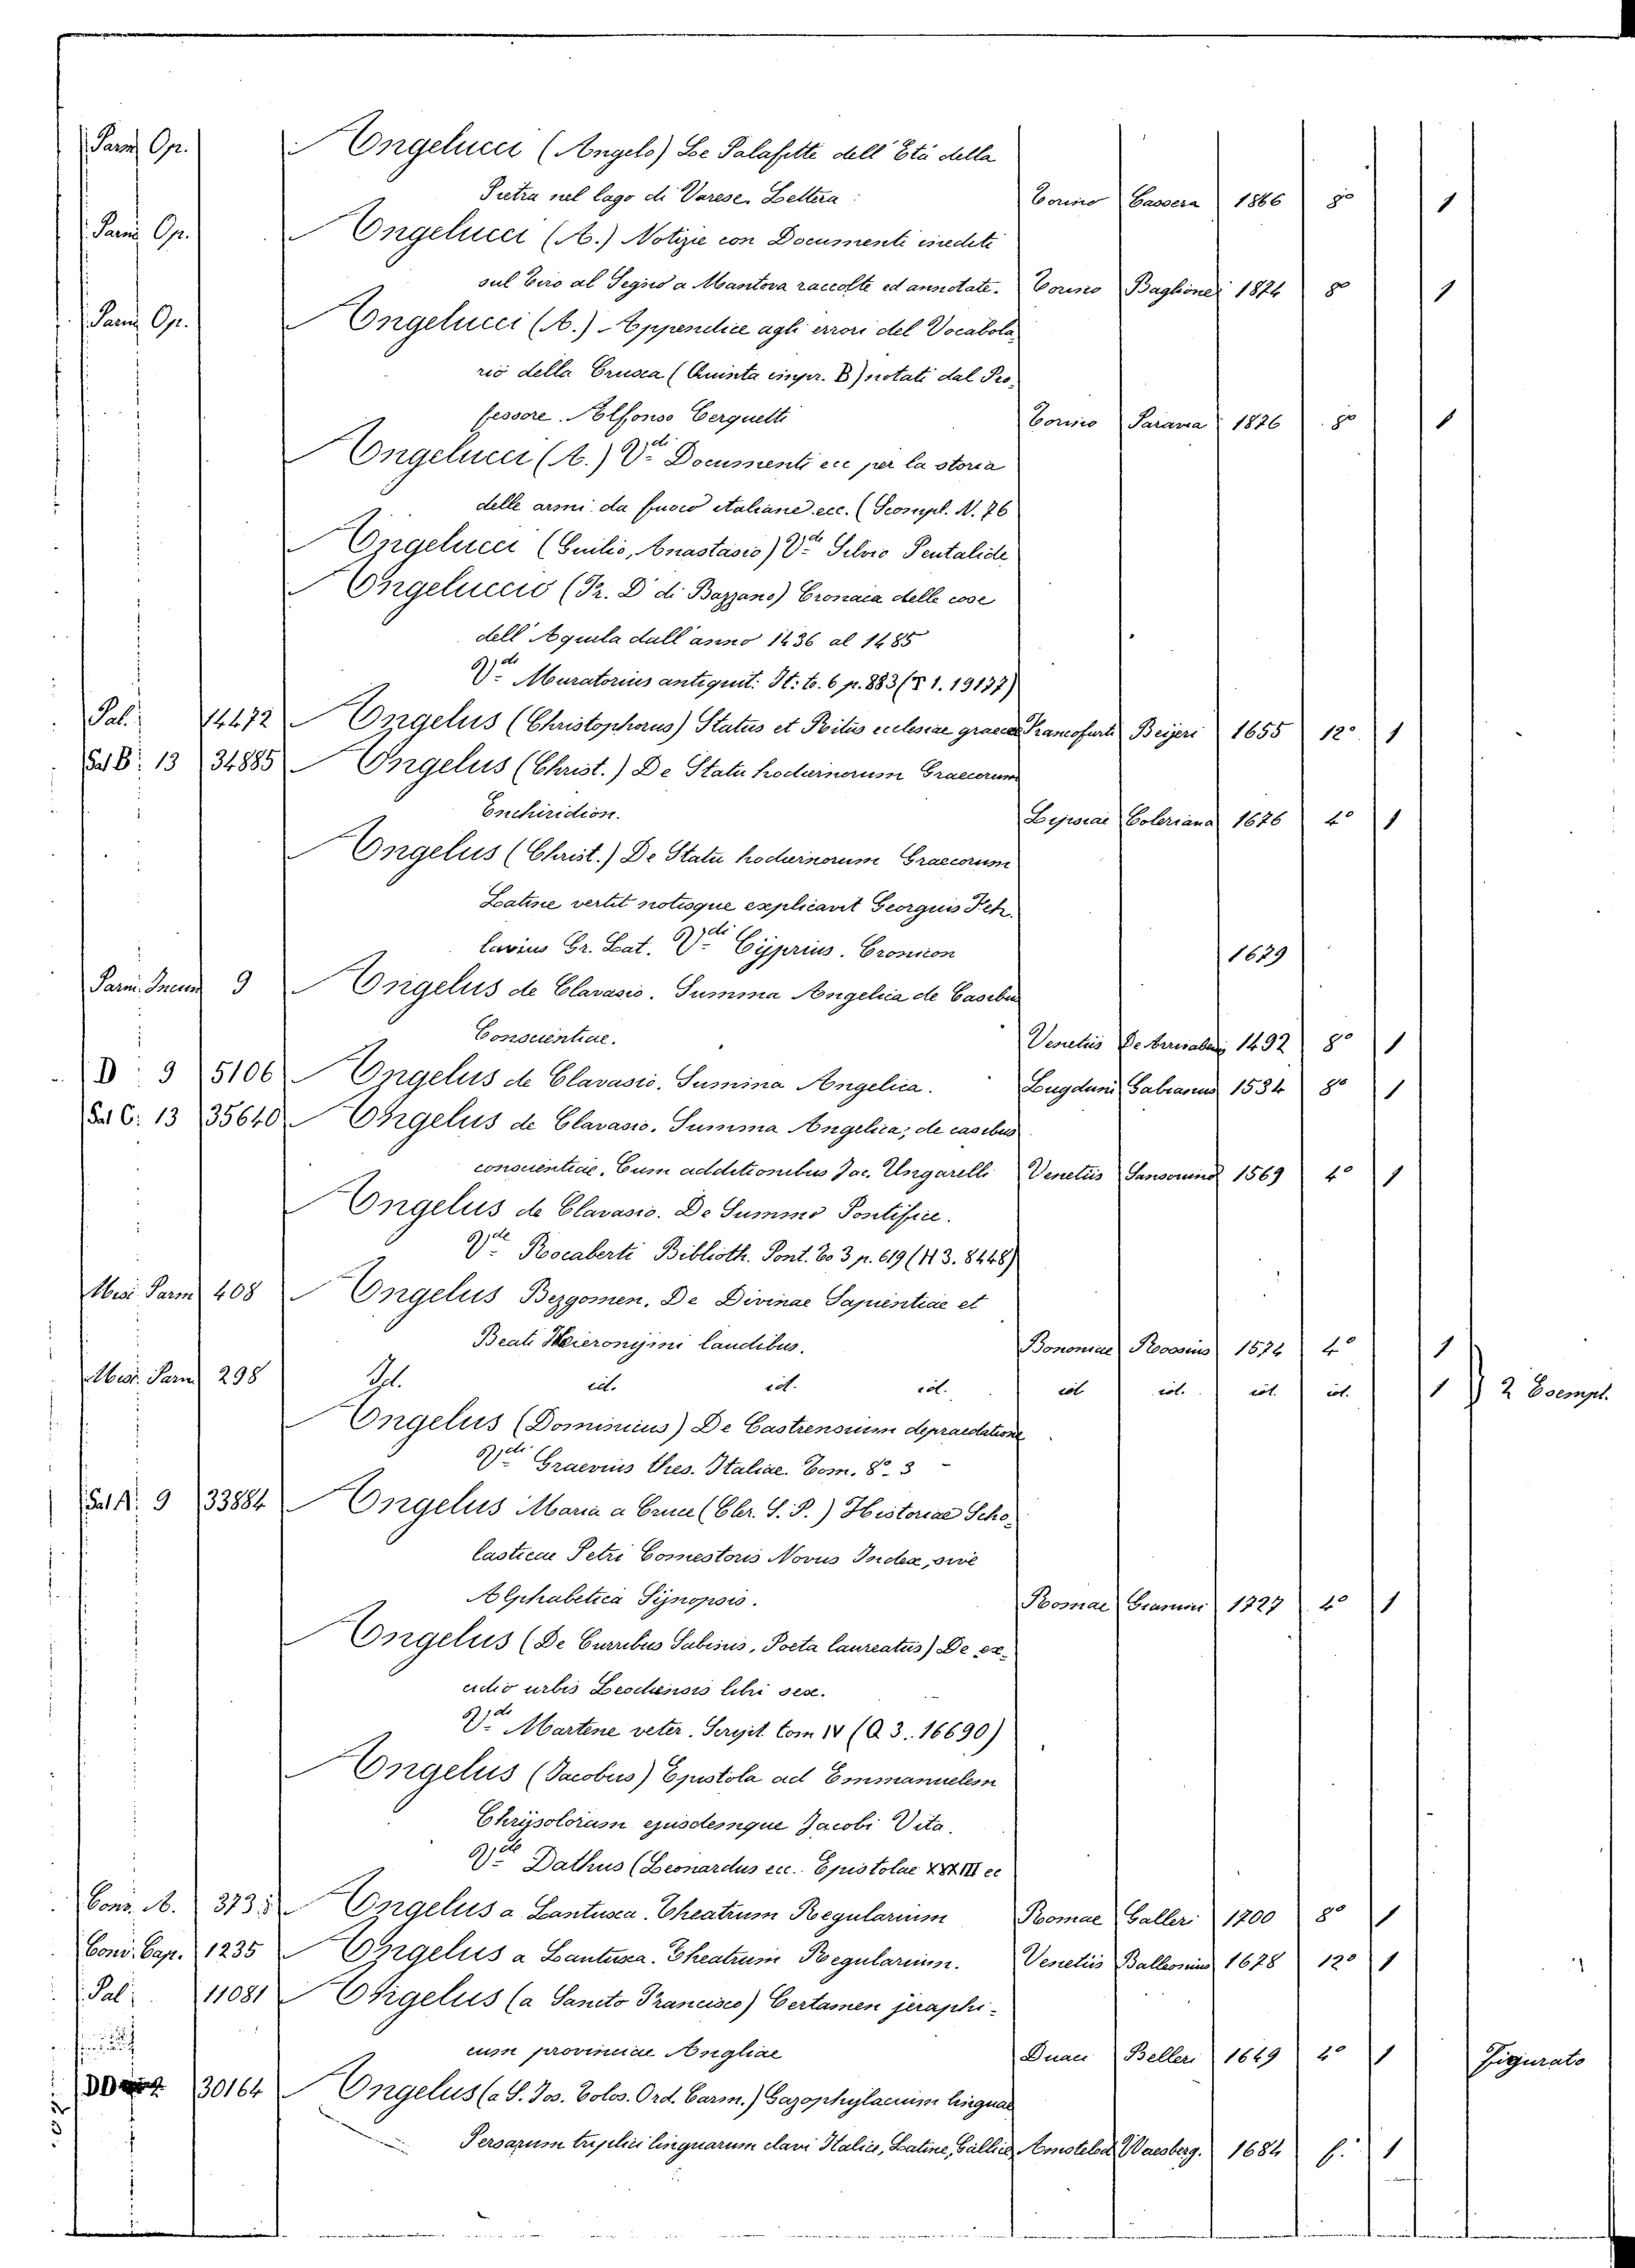 Parm Op. Angelucci (Angelo) Le Palafitte dell'Età della
Pietra nel lago di Varese. Lettera Torino Cassera 1866 8° 1
Parm Op. Angelucci (A.) Notizie con Documenti inediti
sul Tiro al Segno a Mantova raccolte ed annotate. Torino Baglione 1874 8° 1
Parm Op. Angelucci (A.) Appendice agli errori del Vocabola
rio della Crusca (Quinta impr. B) notati dal Pro-
fessore Alfonso Cerquetti Torino Paravia 1876 8° 1
Angelucci (A.) V.di Documenti ecc per la storia
delle armi da fuoco italiane ecc. (Scompl. N. 76
Angelucci (Guilio, Anastasio) V.di Silvio Pentalide
Angeluccio (Fr. D di Bazzano) Cronaca delle cose
dell'Aquila dall'anno 1436 al 1485
V.di Muratorius antiquit. It. t. 6 p. 883 (§ 1. 19137)
Pal. 14472 Angelus (Christophorus) Status et Ritus ecclesiae graecae Francofurti Beijeri 1655 12° 1
Sal B. 13 34885 Angelus (Christ.) De Statu hodiernorum Graecorum
Enchiridion. Lipsiae Coleriana 1676 4° 1
Angelus (Christ.) De Statu hodiernorum Graecorum
Latine vertit notisque explicavit Georgius Feh-
lavius Gr. Lat. V.di Cyprius. Cronicon 1679
Parm. Incun 9 Angelus de Clavasio. Summa Angelica de Casibu
Conscientiae. Venetiis De Arrivaben 1492 8° 1
D 9 5106 Angelus de Clavasio. Summa Angelica. Lugduni Gabianus 1534 8° 1
Sal C. 13 35640 Angelus de Clavasio. Summa Angelica; de casibus
conscientiae. Cum additionibus Jac. Ungarelli Venetiis Sansovino 1569 4° 1
Angelus de Clavasio. De Summo Pontifice.
V.di Rocaberti Biblioth. Pont. To 3 p. 619 (H 3. 8448)
Misc. Parm 408 Angelus Bezgomen. De Divinae Sapientiae et
Beati Hieronymi laudibus. Bononiae Rossius 1574 4° 1
Misc. Parm 298 Id. id. id. id. id. id. id. id. 1 } 2 Esempl.
Angelus (Dominicus) De Castrensium depraedatione
V.di Graevius thes. Italiae. Tom. 8° 3
Sal A. 9 33884 Angelus Maria a Cruce (Cler. S. P.) Historiae Scho-
lasticae Petri Comestoris Novus Index, sive
Alphabetica Synopsis. Romae 1727 4° 1
Angelus (De Curribus Sabinis, Poeta laureatus) De ex-
cidio urbis Leodiensis libri sex.
V.di Martene veter. Script. tom IV (Q 3. 16690)
Angelus (Jacobus) Epistola ad Emmanuelem
Chrysoloram ejusdemque Jacobi Vita.
V.di Dathus (Leonardus ecc. Epistolae XXXIII ec
Conv. A. 3735 Angelus a Lantusca. Theatrum Regularium Romae Galleri 1700 8° 1
Conv. Cap. 1235 Angelus a Lantusca. Theatrum Regularium. Venetiis Balleonius 1678 12° 1
Pal. 11081 Angelus (a Sancto Francisco) Certamen seraphi-
cum provinciae Angliae Duaci Belleri 1649 4° 1 Figurato
30164 Angelus (a S. Jos. Tolos. Ord. Carm.) Gazophylacium linguae
Persarum triplici linguarum clavi Italice, Latine, Gallice Amstelod Waesberg. 1684 f. 1